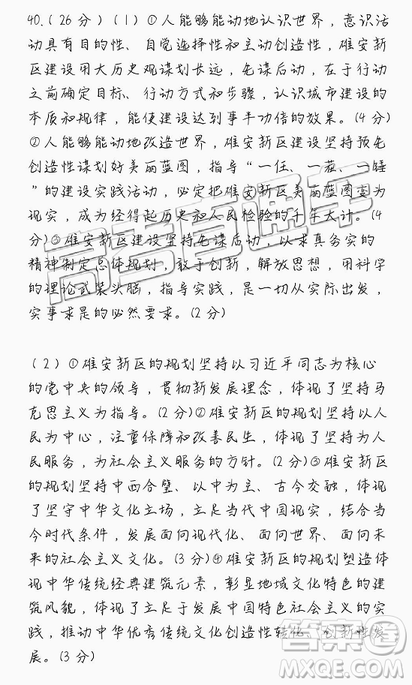 40.(26分)(1)①人能够能动地认识世界，意识活
动具有目的性、自觉选择性和主动创造性，雄安新
区建设用大历史观谋划长远，先谋后动，在于行动
之前确定目标、行动方式和步骤，认识城市建设的
本质和规律，能使建设达到事半功倍的效果。(4分)
②人能够能动地改造世界，雄安新区建设坚持预先
创造性谋划好美丽蓝图，指导“一任、一茬、一睡
”的建设实践活动，必定把雄安新区美丽蓝图变为
现实，成为经得起历史和人民检验的千年大计。(4
分)③雄安新区建设坚持先谋后动，以求真务实的
精神制定总体规划，敢于创新，解放思想，用科学
的理论武装头脑，指导实践，是一切从实际出发，
实事求是的必然要求。(2分)
(2)①雄安新区的规划坚持以习近平同志为核心
的党中央的领导，贯彻新发展理念，体现了坚持马
克思主义为指导。(2分)②雄安新区的规划坚持以人
民为中心，注重保障和改善民生，体现了坚持为人
民服务，为社会主义服务的方针。(2分)③雄安新区
的规划坚持中西合璧、以中为主、古今交融，体现
了坚守中华文化立场，立足当代中国现实，结合当
今时代条件，发展面向现代化、面向世界、面向未
来的社会主义文化。(3分)④雄安新区的规划塑造体
现中华传统经典建筑元素，彰显地域文化特色的建
筑风貌，体现了立足于发展中国特色社会主义的实
践，推动中华优秀传统文化创造性转化、创新性发
展。(3分)
高考直通车